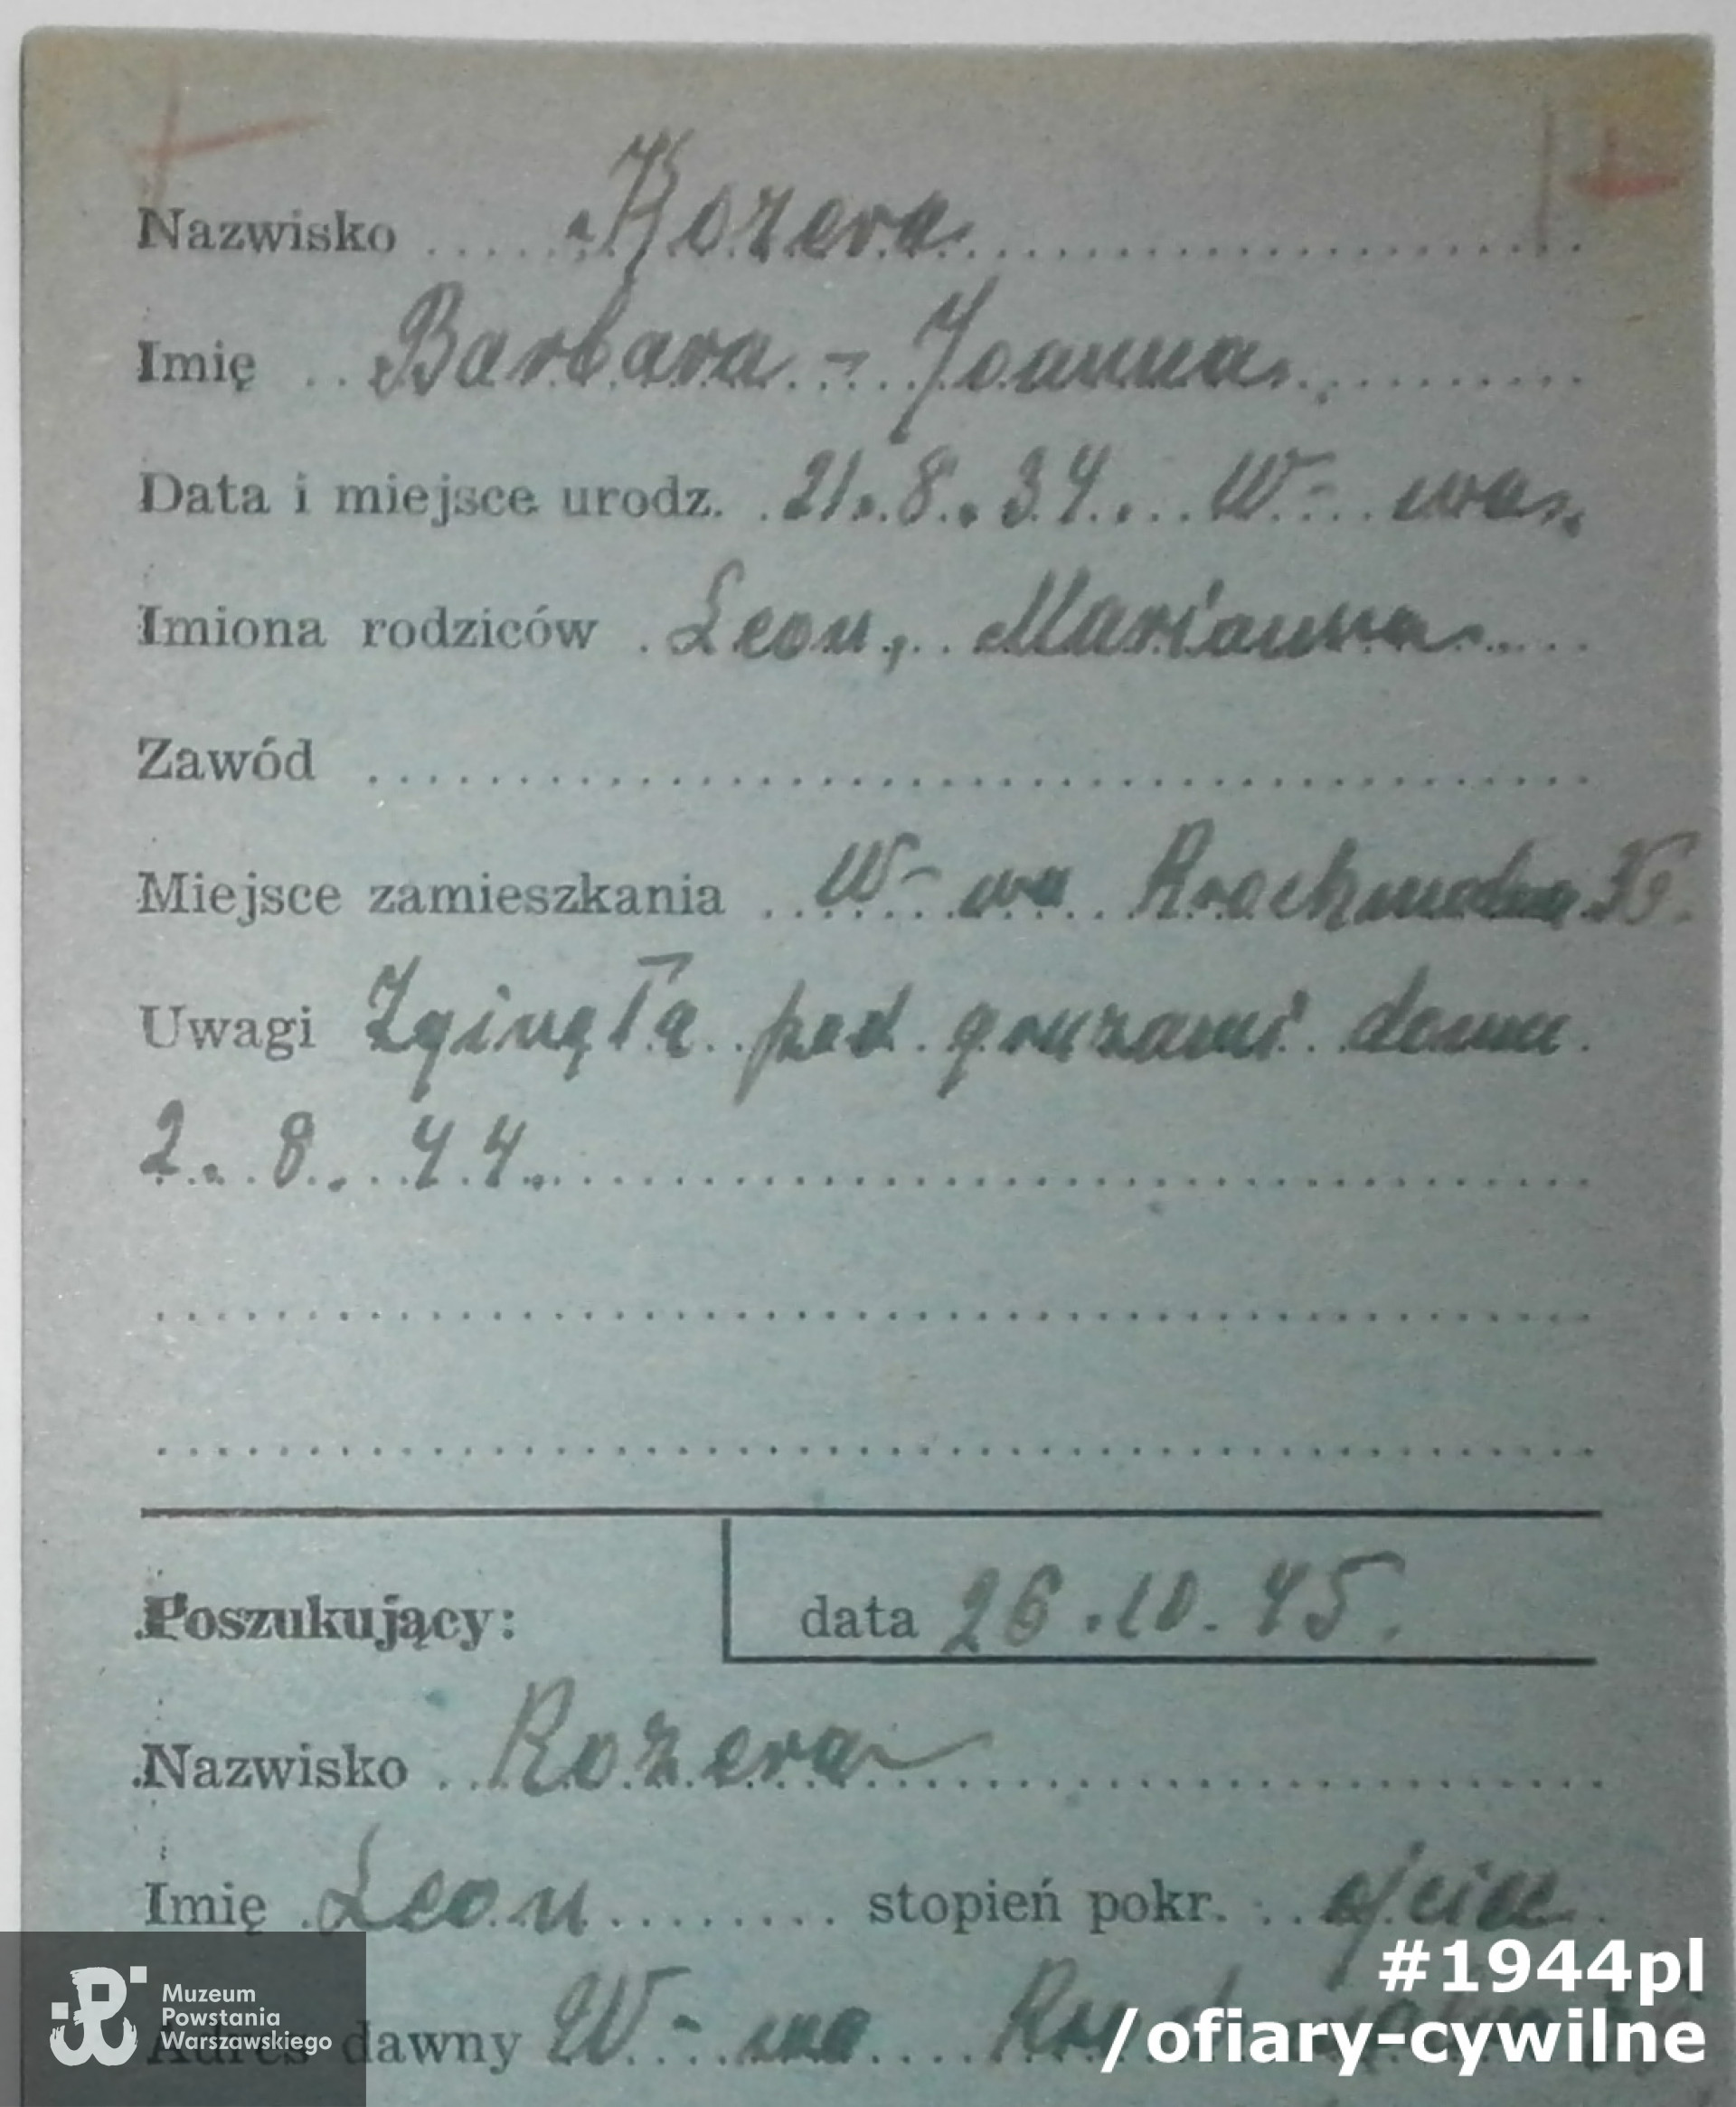 Nazwisko Kozera
Imię Barbara - Joanna
Data i miejsce urodz. 21.8.34. W-wa
Imiona rodziców Leon, Marianna
Zawód
Miejsce zamieszkania W-wa Krochmalna
Uwagi Zginęła pod gruzami domu
2. 8. 44.
Poszukujący: data 26.10.45.
Nazwisko Kozera
Imię Leon stopień pokr. ojciec
Adres dawny W-wa
Muzeum
Powstania
Warszawskiego
#1944pl
/ofiary-cywilne